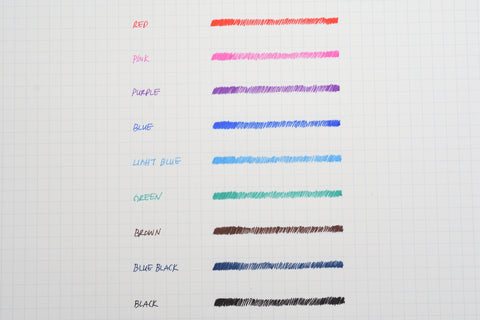 RED
PINK
PURPLE
BLUE
LIGHT BLUE
GREEN
BROWN
BLUE BLACK
BLACK